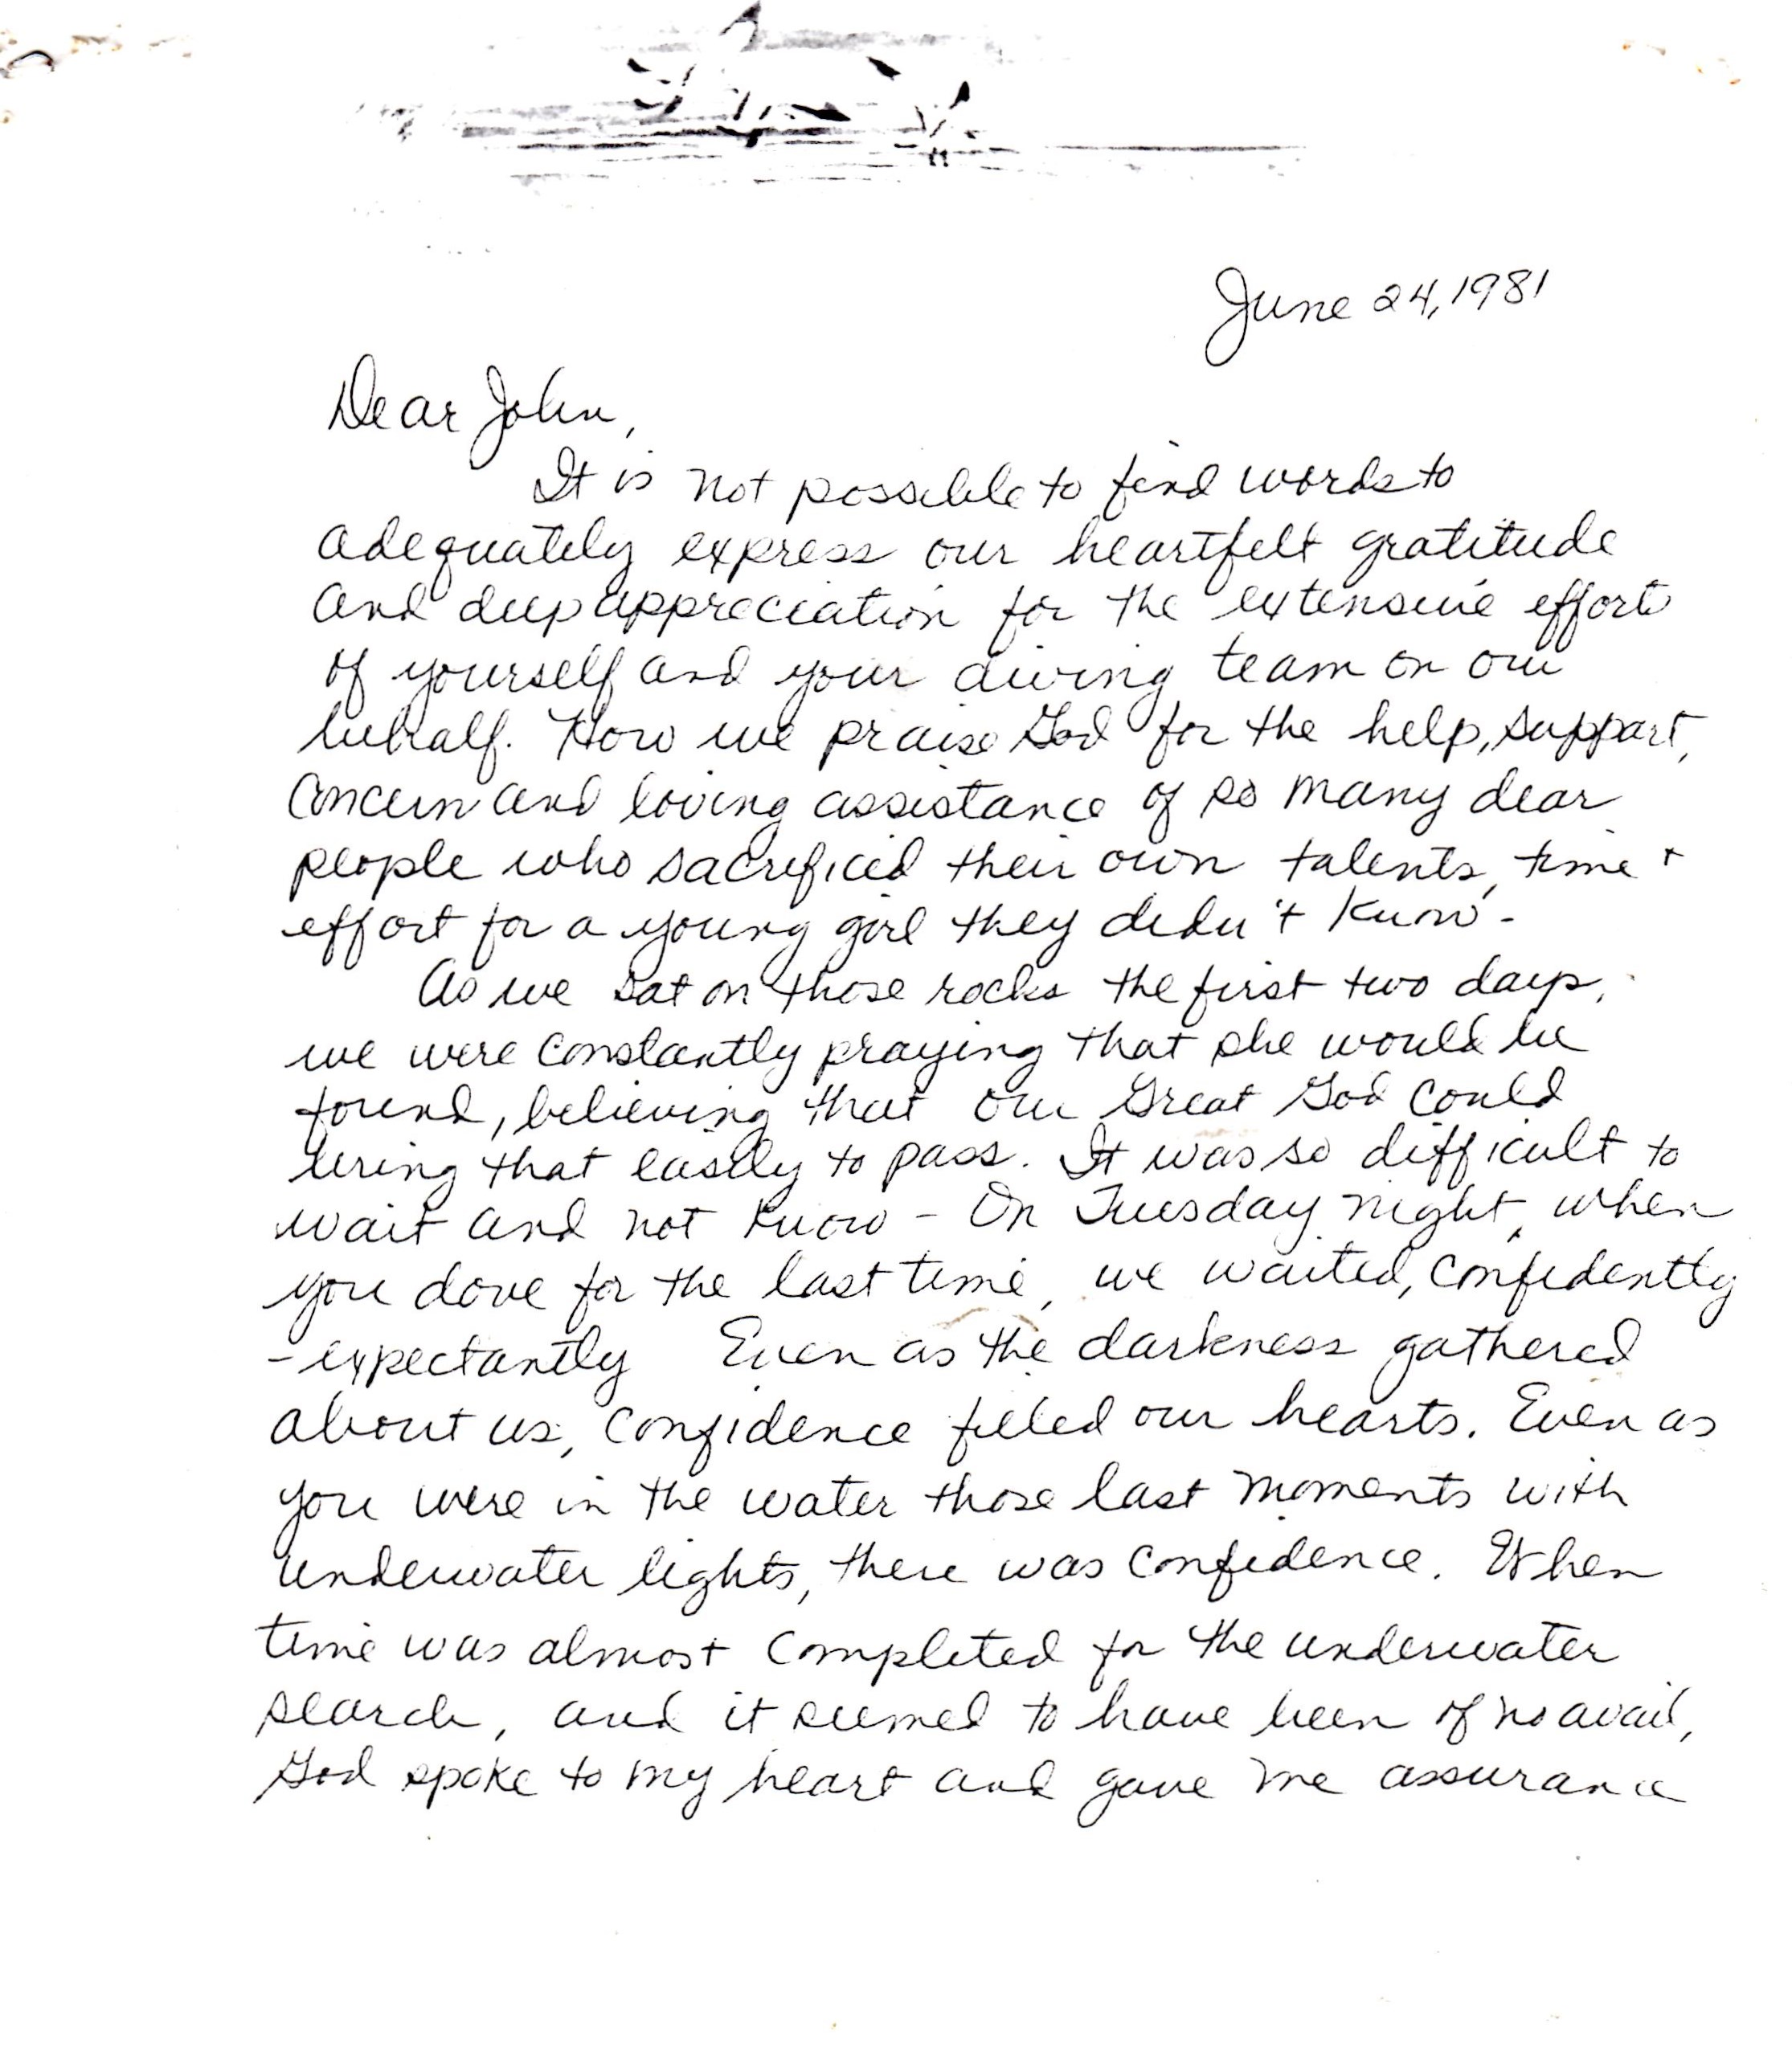 June 24, 1981
Dear John,
It is not possible to find words to
adequately express our heartfelt gratitude
and deep appreciation for the extensive effort
of yourself and your diving team on our
behalf. How we praise God for the help, support,
concern and loving assistance of so many dear
people who sacrificed their own talents, time +
effort for a young girl they didn't know -
As we sat on those rocks the first two days,
we were constantly praying that she would be
found, believing that our Great God could
bring that easily to pass. It was so difficult to
wait and not know - On Tuesday night, when
you dove for the last time, we waited, confidently
- expectantly Even as the darkness gathered
about us, confidence filled our hearts. Even as
you were in the water those last moments with
underwater lights, there was confidence. When
time was almost completed for the underwater
search, and it seemed to have been of no avail,
God spoke to my heart and gave me assurance